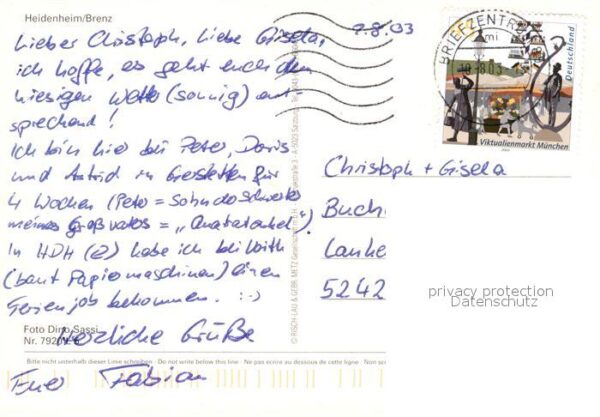 Heidenheim/Brenz
7.8.03
Lieber Christoph, Liebe Gisela,
ich hoffe, es geht euch dem
hiesigen Wetter (sonnig) ent
sprechend!
Ich bin hier bei Peter, Doris
und Astrid in Gerstetten für
4 Wochen (Peter = Sohn der Schwester
meines Großvaters = „ ")
In HDH (2) habe ich bei Voith
(baut Papiermaschinen) einen
Ferienjob bekommen. :-)
Herzliche Grüße
Euer Fabian
Foto Dino Sassi
Nr. 792
Bitte nicht unterhalb dieser Linie schreiben · Do not write below this line · Ne pas ecrire au dessous de cette ligne · Non scri
© RISCH-LAU & GEBR. METZ
BRIEFZENTRUM
mi
Deutschland
Viktualienmarkt München
Christoph + Gisela
Buch
Lanke
5242
privacy protection
Datenschutz